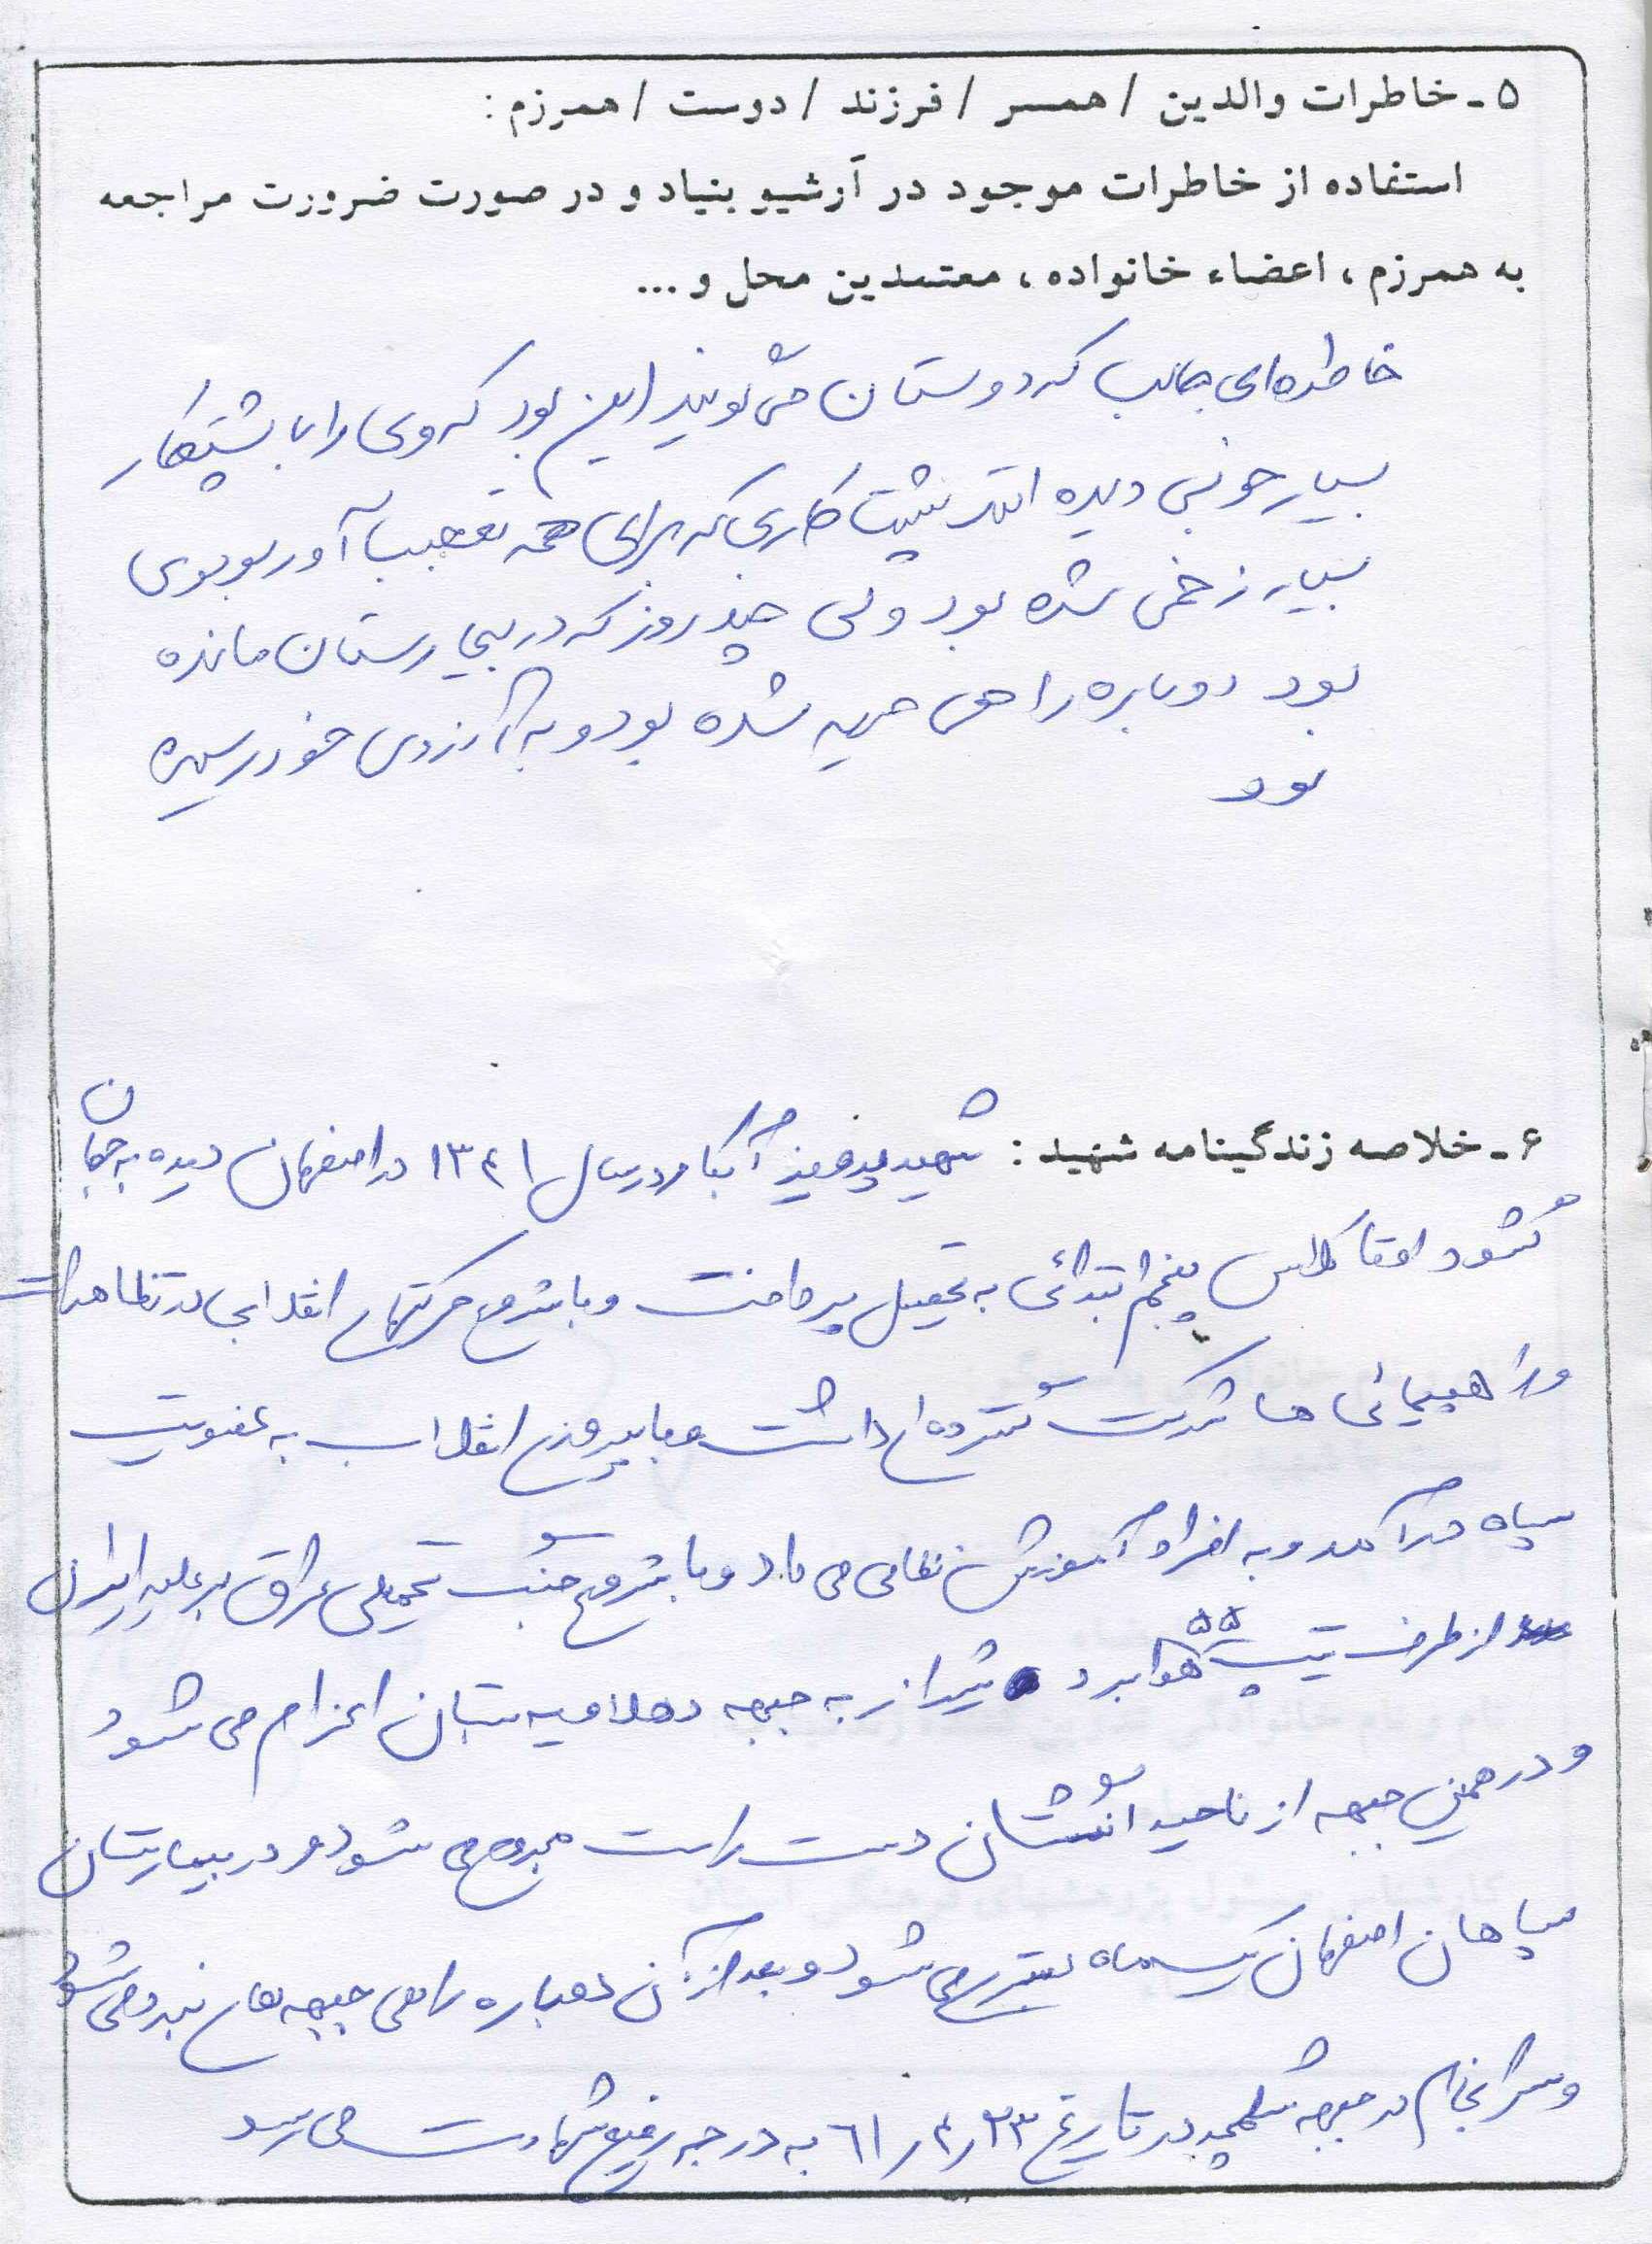 ۵ ـ خاطرات والدین / همسر / فرزند / دوست / همرزم :
استفاده از خاطرات موجود در آرشیو بنیاد و در صورت ضرورت مراجعه
به همرزم ، اعضاء خانواده ، معتمدین محل و ...
خاطره‌ای جالب که دوستان می‌گویند این بود که وی را با پشتکار
بسیار خوبی دیده‌اند پشتکاری که برای همه تعجب آور بود وی
بسیار زخمی شده بود ولی چند روز که در بیمارستان مانده
بود دوباره راهی جبهه شده بود و به آرزوی خود رسیده
بود
۶ ـ خلاصه زندگینامه شهید : شهید پرویز آبکار در سال ۱۳۴۱ در اصفهان دیده به جهان
گشود او تا کلاس پنجم ابتدائی به تحصیل پرداخت و با شروع حرکتهای انقلابی در تظاهرات
و راهپیمائی ها شرکت گسترده‌ای داشت و با پیروزی انقلاب به عضویت
سپاه درآمد و به افراد آموزش نظامی می داد و با شروع جنگ تحمیلی عراق بر علیه ایران
از طرف تیپ ۵۵ هوابرد شیراز به جبهه دهلاویه بستان اعزام می شود
و در همین جبهه از ناحیه انگشتان دست راست مجروح می شود و در بیمارستان
سپاهان اصفهان یکماه بستری می شود و بعد از آن دوباره راهی جبهه های نبرد می شود
و سرانجام در جبهه شلمچه در تاریخ ۶۱/۴/۲۳ به درجه رفیع شهادت می رسد